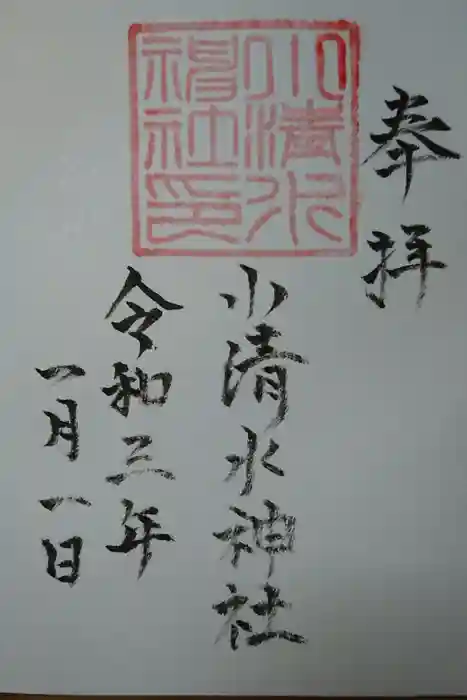 奉拝
小清水神社印
小清水神社
令和三年
一月一日